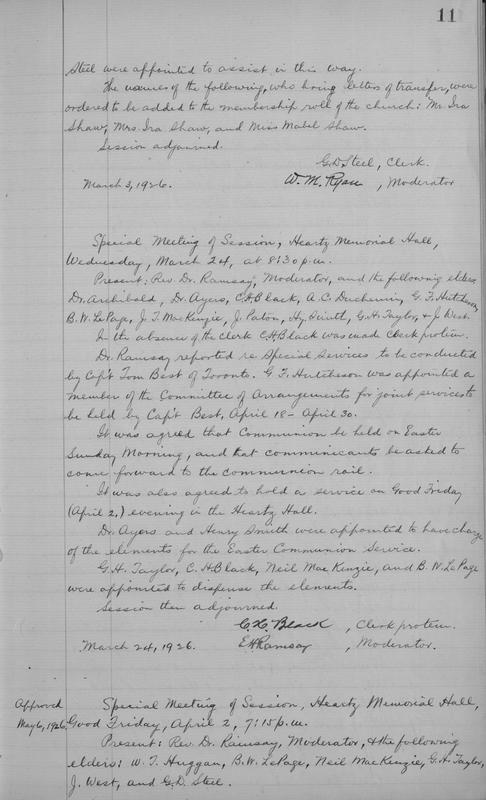 11
Steel were appointed to assist in this way.
The names of the following, who bring letters of transfer, were
ordered to be added to the membership roll of the church: Mr. Ira
Shaw, Mrs. Ira Shaw, and Miss Mabel Shaw.
Session adjourned.
G.D. Steel, Clerk.
March 3, 1926. W. M. Ryan, Moderator
Special Meeting of Session, Heartz Memorial Hall,
Wednesday, March 24, at 8:30 p.m.
Present: Rev. Dr. Ramsay, Moderator, and the following elders
Dr. Archibald, Dr. Ayers, C.H. Black, A.C. Duchemin, G.F. Hutcheson,
B.W. LePage, J.T. MacKenzie, J. Paton, Hy. Smith, G.H. Taylor, & J. West.
In the absence of the clerk C.H. Black was made Clerk protem.
Dr. Ramsay reported re Special Services to be conducted
by Capt Tom Best of Toronto. G.F. Hutcheson was appointed a
member of the Committee of Arrangements for joint services to
be held by Capt Best, April 18 - April 30.
It was agreed that Communion be held on Easter
Sunday Morning, and that communicants be asked to
come forward to the communion rail.
It was also agreed to hold a service on Good Friday
(April 2,) evening in the Heartz Hall.
Dr. Ayers and Henry Smith were appointed to have charge
of the elements for the Easter Communion Service.
G.H. Taylor, C.H. Black, Neil MacKenzie, and B.W. LePage
were appointed to dispense the elements.
Session then adjourned.
C.H. Black, Clerk protem.
March 24, 1926. E H Ramsay, Moderator.
Approved Special Meeting of Session, Heartz Memorial Hall,
May 6, 1926. Good Friday, April 2, 7:15 p.m.
Present: Rev. Dr. Ramsay, Moderator, & the following
elders: W.T. Huggan, B.W. LePage, Neil MacKenzie, G.H. Taylor,
J. West, and G.D. Steel.